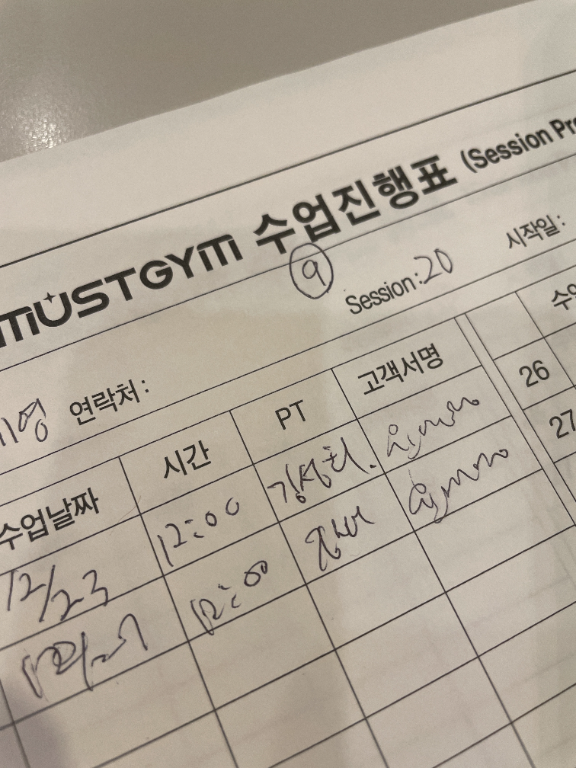 MUSTGYM 수업진행표 (Session Pro
9
Session: 20 시작일:
영 연락처:
수업날짜 시간 PT 고객서명 수업
12/23 12:00 26
12:00 27